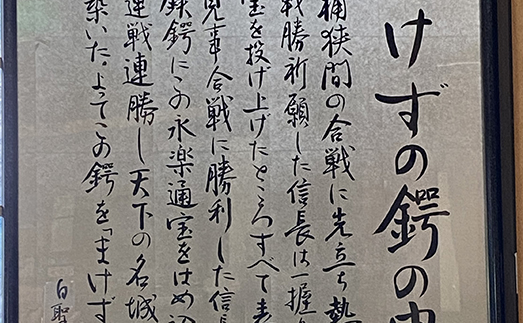 けずの鍔の由
桶狭間の合戦に先立ち熱
戦勝祈願した信長は一握り
宝を投げ上げたところすべて表
見事合戦に勝利した信長
鉄鍔にこの永楽通宝をはめ込
連戦連勝し天下の名城
築いた。よってこの鍔を「まけず
白聖